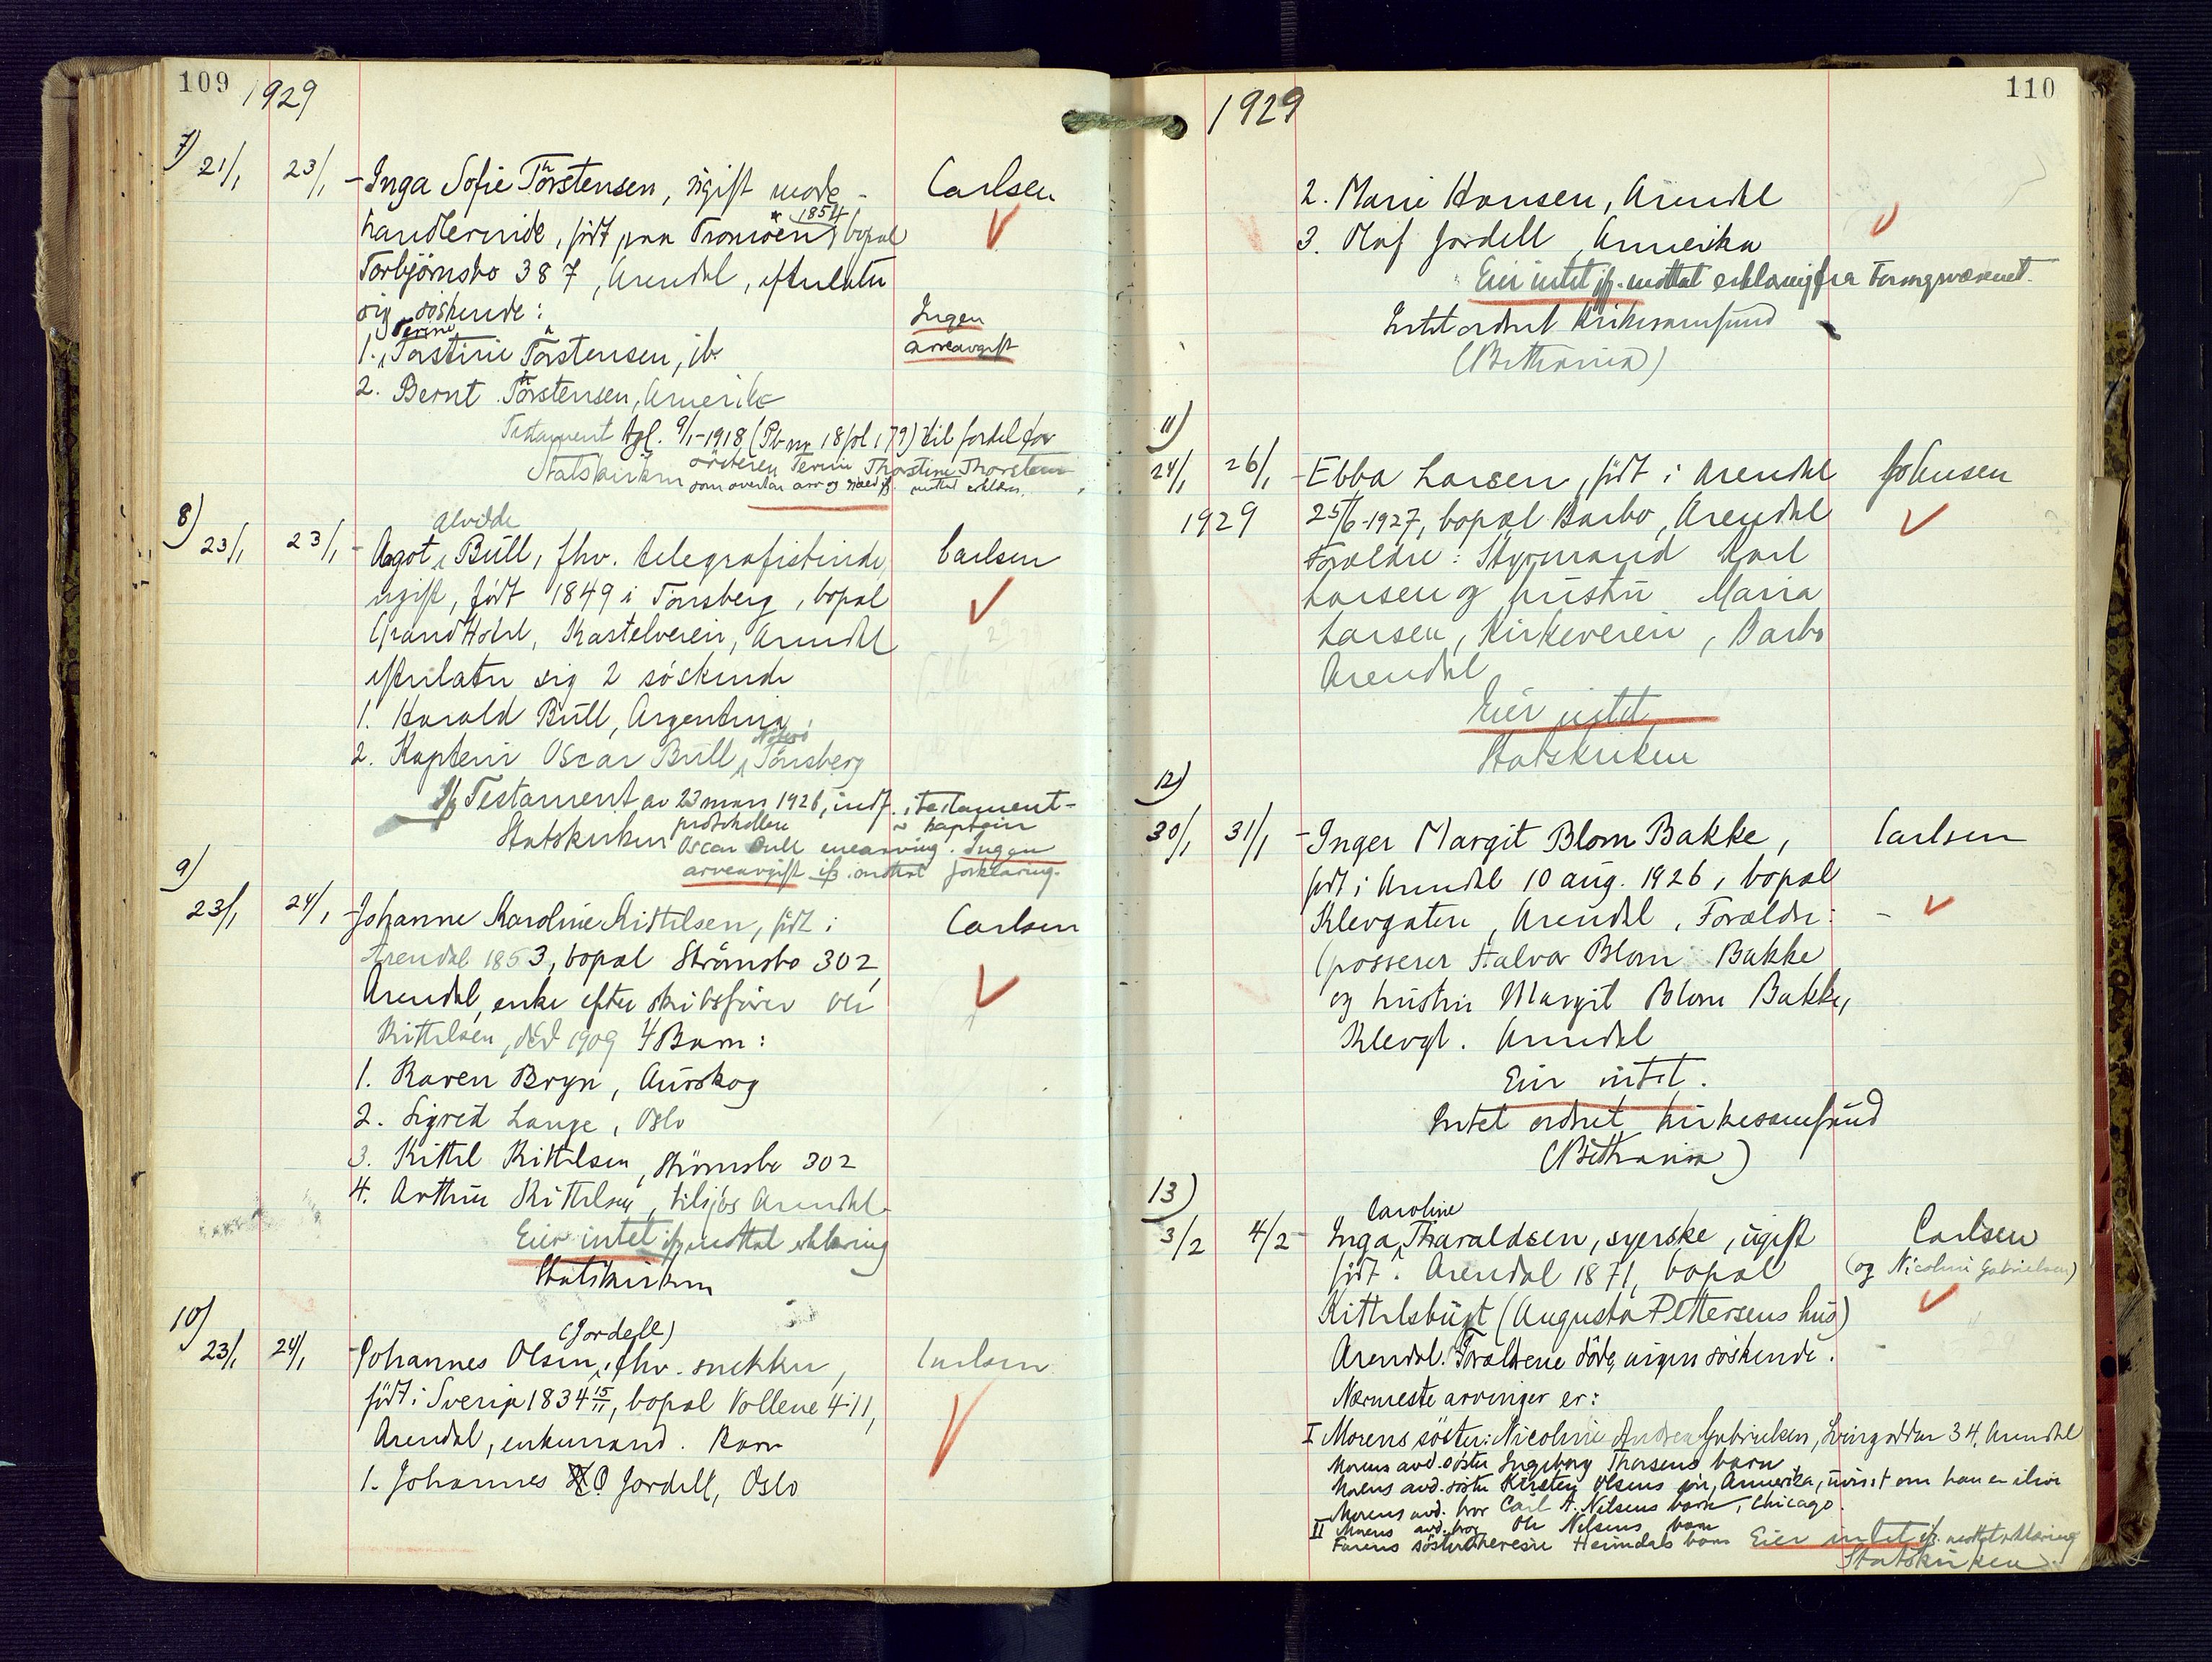 109
1929
7) 21/1 23/1 - Inga Sofie Thorstensen, ugift mode-
handlerinde, født paa Tromøen * 1854, bopæl
Torbjørnsbo 387, Arendal, efterlater
sig søskende:
1. Terine Torstine Thorstensen, ib.
2. Bernt Thorstensen, Amerika
Carlsen
Ingen
arveavgift
Testament tgl. 9/1-1918 (Pb nr 18 fol 179) til fordel for
Statskirken søsteren Terine Thorstine Thorstensen
som overtar arv og gjæld if. mottat erklær.
8) 23/1 23/1 - Aagot Alvilde Bull, fhv. telegrafistinde,
ugift, født 1849 i Tønsberg, bopæl
Grand Hotel, Kastelveien, Arendal
efterlater sig 2 søskende
1. Harald Bull, Argentina
2. Kaptein Oscar Bull, Nøterø Tønsberg
Carlsen
If Testament av 23 mars 1926, indf. i testament-
protokollen er kaptein
Statskirken Oscar Bull enearving. Ingen
arveavgift ifg. mottat forklaring.
9) 23/1 24/1 - Johanne Karoline Kittelsen, født i
Arendal 1853, bopæl Strømsbo 302,
Arendal, enke efter skibsfører Ole
Kittelsen, død 1909 4 Barn:
1. Karen Bryn, Aurskog
2. Sigrid Lange, Oslo
3. Kittel Kittelsen, Strømsbo 302
4. Arthur Kittelsen, tilsjøs Arendal
Carlsen
Eier intet ifg mottat erklæring
Statskirken
10) 23/1 24/1 - Johannes Olsen (Jordell), fhv. snekker,
født i Sverige 1834 15/11, bopæl Vollene 411,
Arendal, enkemand. Barn
1. Johannes O Jordell, Oslo
Carlsen
110
1929
2. Marie Hansen, Arendal
3. Olaf Jordell, Amerika
Eier intet if. mottat erklæring fra Forsorgsvæsenet.
Intet ordnet kirkesamfund
(Bethania)
11)
24/1 26/1 - Ebba Larsen, født i Arendal
1929 25/6-1927, bopæl Barbo, Arendal
Forældre: Styrmand Karl
Larsen og hustru Maria
Larsen, Kirkeveien, Barbo
Arendal
Johnsen
Eier intet
Statskirken
12)
30/1 31/1 - Inger Margit Blom Bakke,
født i Arendal 10 aug. 1926, bopæl
Klevgaten, Arendal, Forældre:
Gposserer Halvor Blom Bakke
og hustru Margit Blom Bakke,
Klevgt. Arendal
Carlsen
Eier intet.
Intet ordnet kirkesamfund
(Bethania)
13)
3/2 4/2 - Inga Caroline Tharaldsen, syerske, ugift
født i Arendal 1871, bopæl
Kittelsbugt (Augusta Pettersens hus)
Arendal. Forældrene døde, ingen søskende.
Nærmeste arvinger er:
Carlsen
(og Nicoline Gabrielsen)
I Morens søster: Nicoline Andrea Gabrielsen, Lvingodden 34, Arendal
Morens avd. søster Ingeborg Thorsens barn
Morens avd. søster Kirsten Olsens søn, Amerika, uvisst om han er ilive
Morens avd. bror Carl A. Nilsens barn, Chicago.
Morens avd. bror Ole Nilsens barn
II Farens søster Theresie Heimdals barn Eier intet if. mottat erklæring
Statskirken